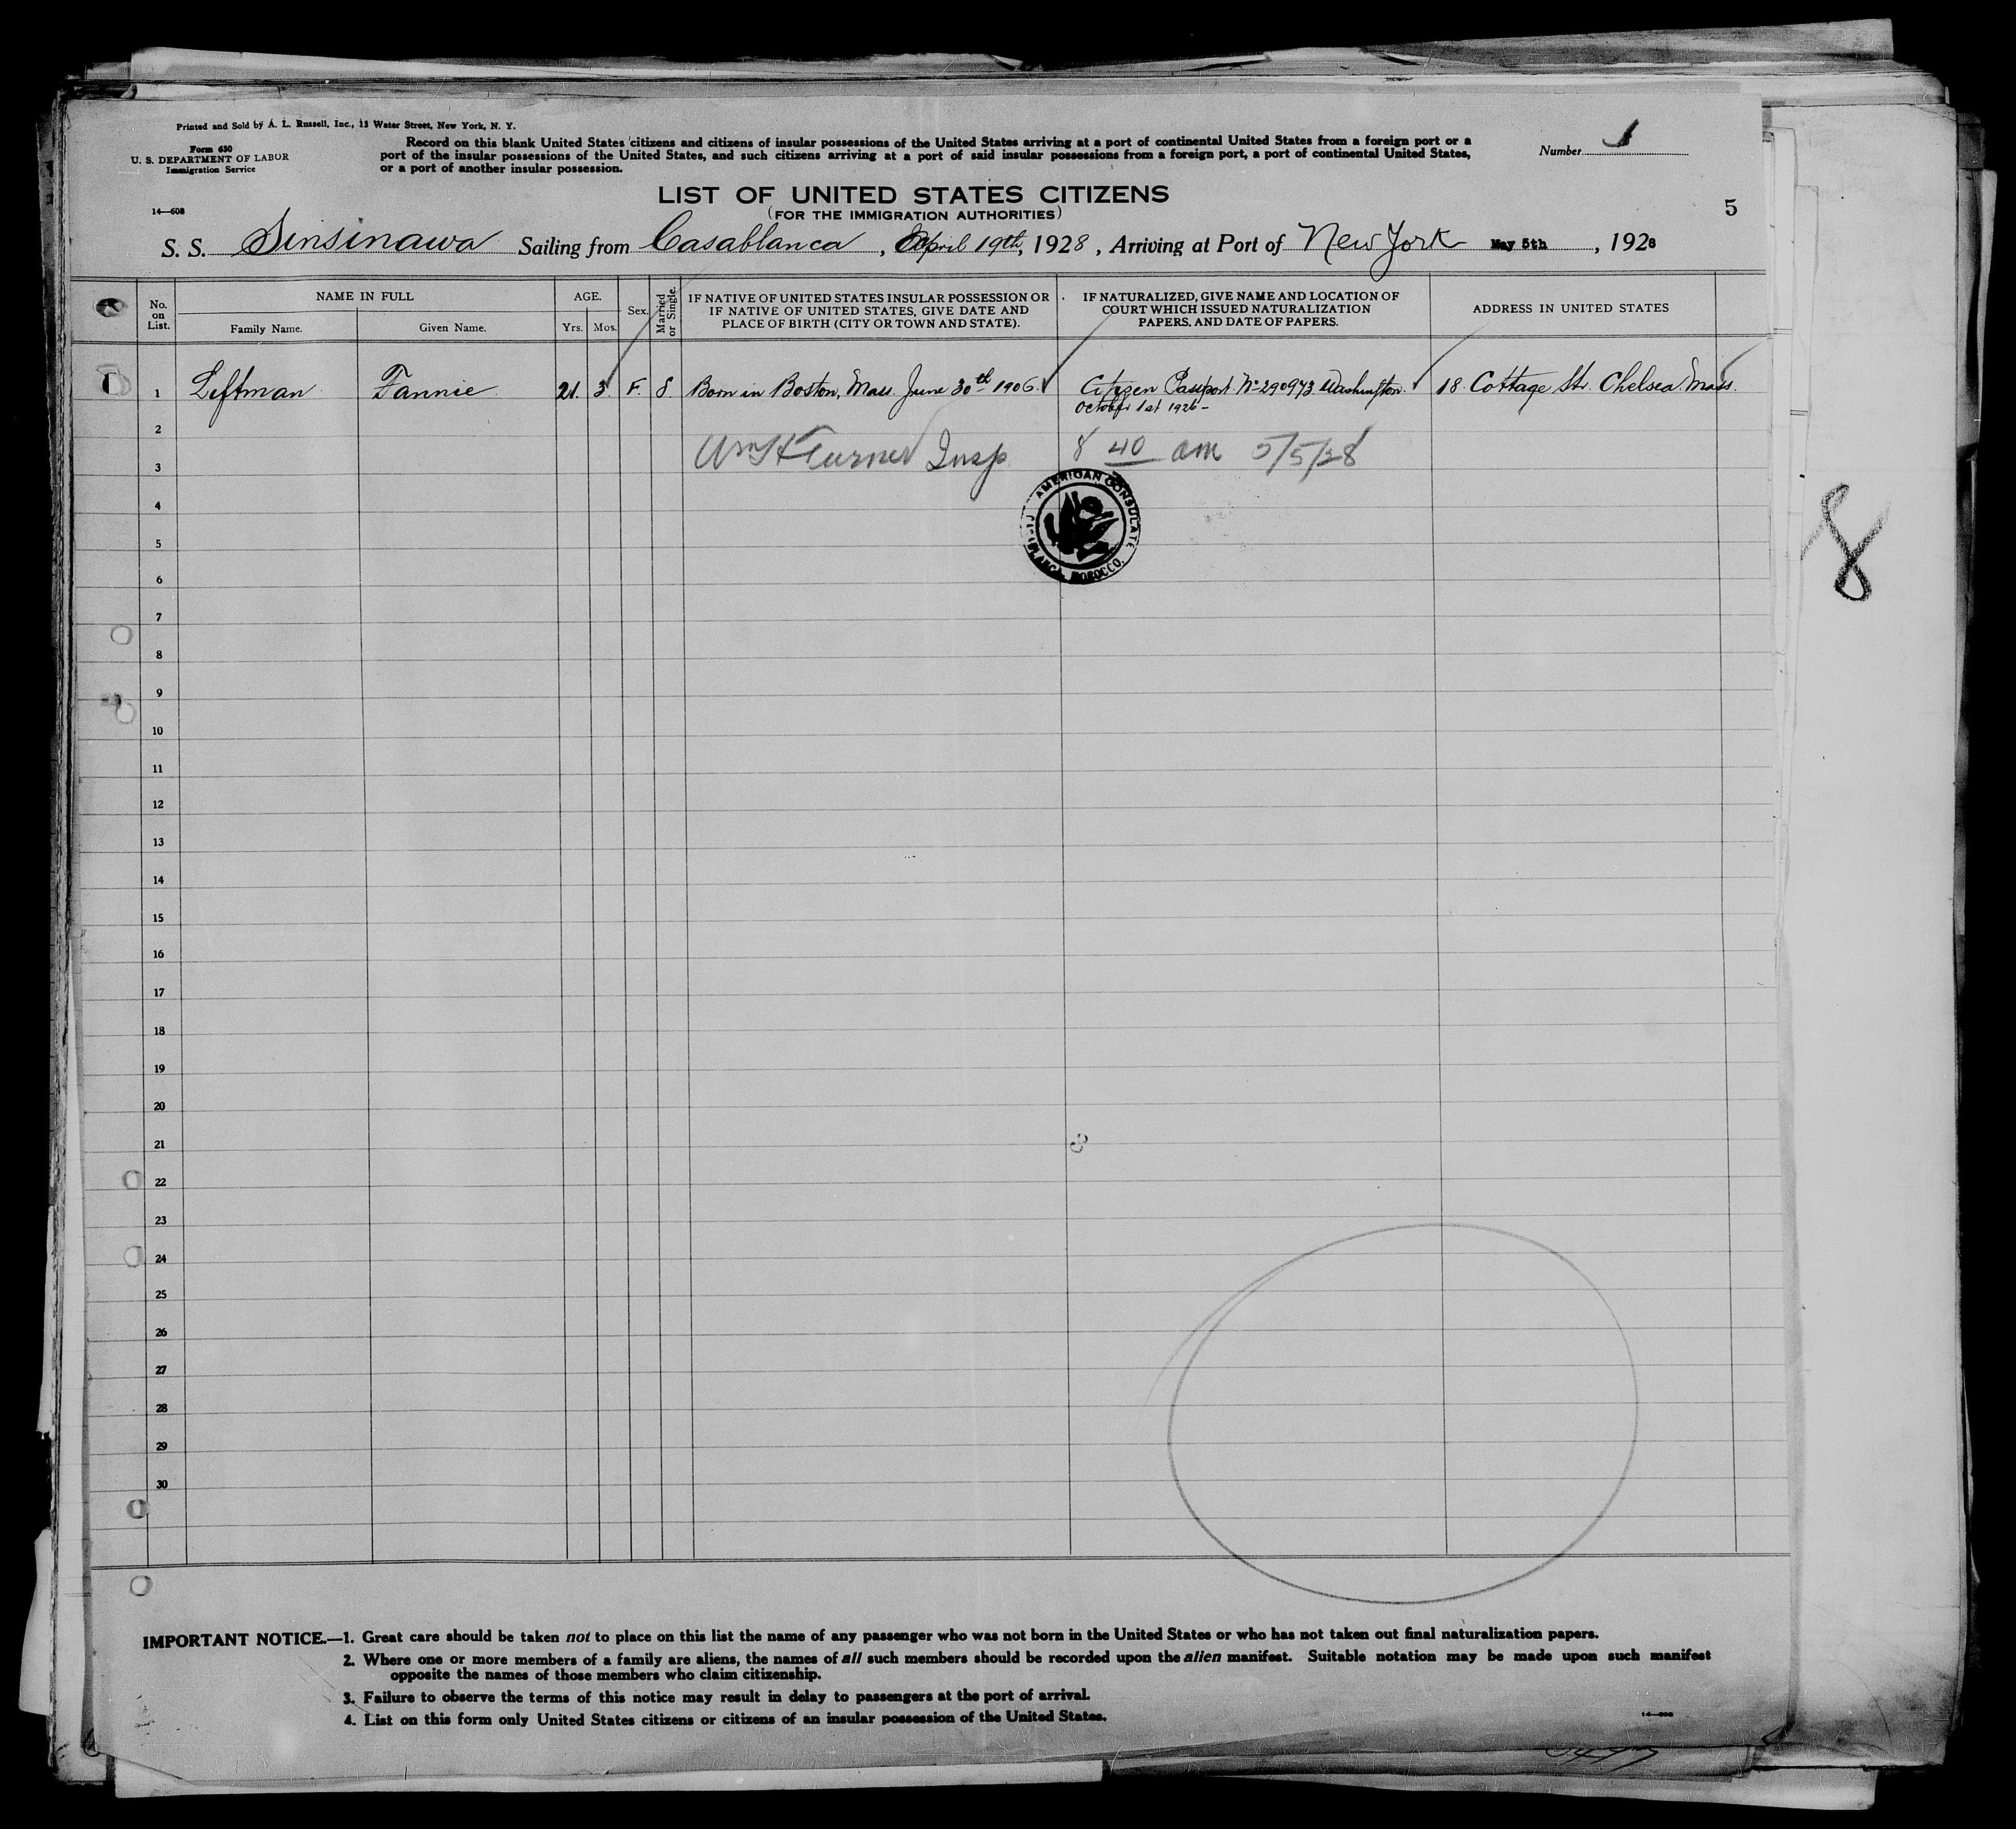 Printed and Sold by A. L. Russell, Inc., 13 Water Street, New York, N. Y.
Form 630
U. S. DEPARTMENT OF LABOR
Immigration Service
Record on this blank United States citizens and citizens of insular possessions of the United States arriving at a port of continental United States from a foreign port or a
port of the insular possessions of the United States, and such citizens arriving at a port of said insular possessions from a foreign port, a port of continental United States,
or a port of another insular possession.
Number 1
LIST OF UNITED STATES CITIZENS
(FOR THE IMMIGRATION AUTHORITIES)
14—608
5
S. S. Sinsinawa Sailing from Casablanca, April 19th, 1928, Arriving at Port of New York May 5th, 1928
No. on List.
NAME IN FULL
Family Name. Given Name.
AGE.
Yrs. Mos.
Sex.
Married or Single.
IF NATIVE OF UNITED STATES INSULAR POSSESSION OR
IF NATIVE OF UNITED STATES, GIVE DATE AND
PLACE OF BIRTH (CITY OR TOWN AND STATE).
IF NATURALIZED, GIVE NAME AND LOCATION OF
COURT WHICH ISSUED NATURALIZATION
PAPERS, AND DATE OF PAPERS.
ADDRESS IN UNITED STATES
1 Leftman Fannie 21. 3. F. S. Born in Boston, Mass. June 30th 1906. Citizen Passport No 290973 Washington. 18 Cottage Str. Chelsea Mass.
October 1st 1926-
2
Wm H Turner Insp 8 40 am 5/5/28
3
AMERICAN CONSULATE
CASABLANCA, MOROCCO.
4
8
5
6
7
8
9
10
11
12
13
14
15
16
17
18
19
20
21
22
23
24
25
26
27
28
29
30
IMPORTANT NOTICE.—1. Great care should be taken not to place on this list the name of any passenger who was not born in the United States or who has not taken out final naturalization papers.
2. Where one or more members of a family are aliens, the names of all such members should be recorded upon the alien manifest. Suitable notation may be made upon such manifest
opposite the names of those members who claim citizenship.
3. Failure to observe the terms of this notice may result in delay to passengers at the port of arrival.
4. List on this form only United States citizens or citizens of an insular possession of the United States.
14—608